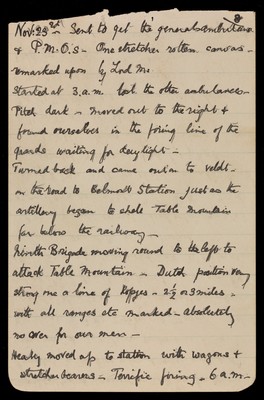 8
Nov. 23rd - Sent to get the generals ambulance
& P.M.O.s - One stretcher rotten canvas -
remarked upon by Lord M.
Started at 3 a.m. took the other ambulances -
Pitch dark - moved out to the right &
found ourselves in the firing line of the
Guards waiting for daylight -
Turned back and came out on to veldt -
on the road to Belmont Station just as the
artillery began to shell Table Mountain
far below the railway -
Ninth Brigade moving round to the left to
attack Table Mountain - Dutch position very
strong one a line of Kopjes - 2½ or 3 miles -
with all ranges etc marked - absolutely
no cover for our men -
Healy moved up to station with wagons &
stretcher bearers - Terrific firing - 6 a.m. -